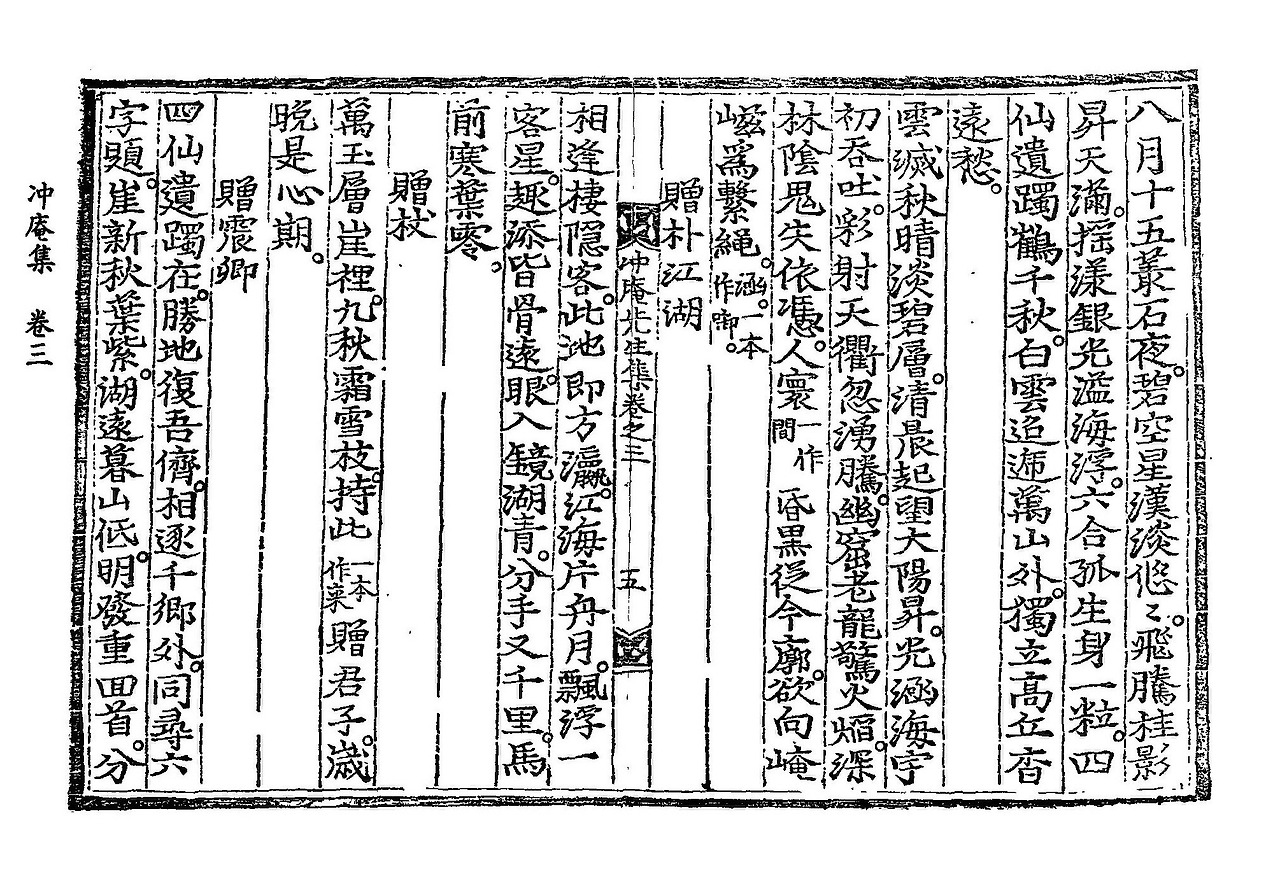 八月十五叢石夜。碧空星漢淡悠〻。飛騰桂影
昇天滿。搖漾銀光溢海浮。六合孤生身一粒。四
仙遺躅鶴千秋。白雲迢遞萬山外。獨立高丘杳
遠愁。
雲滅秋晴淡碧層。清晨起望大陽昇。光涵海宇
初吞吐。彩射天衢忽湧騰。幽窟老龍驚火焰。深
林陰鬼失依憑。人寰一作間昏黑從今廓。欲向崦
嵫爲繫繩。涵。一本作啣。
贈朴江湖
冲庵先生集卷之三 五
相逢棲隱客。此地卽方瀛。江海片舟月。飄浮一
客星。趣添皆骨遠。眼入鏡湖靑。分手又千里。馬
前寒葉零。
贈杖
萬玉層崖裡。九秋霜雪枝。持此一本作來贈君子。歲
晩是心期。
贈霞卿
四仙遺躅在。勝地復吾儕。相逐千鄕外。同尋六
字題。崖新秋葉紫。湖遠暮山低。明發重回首。分
冲庵集 卷三